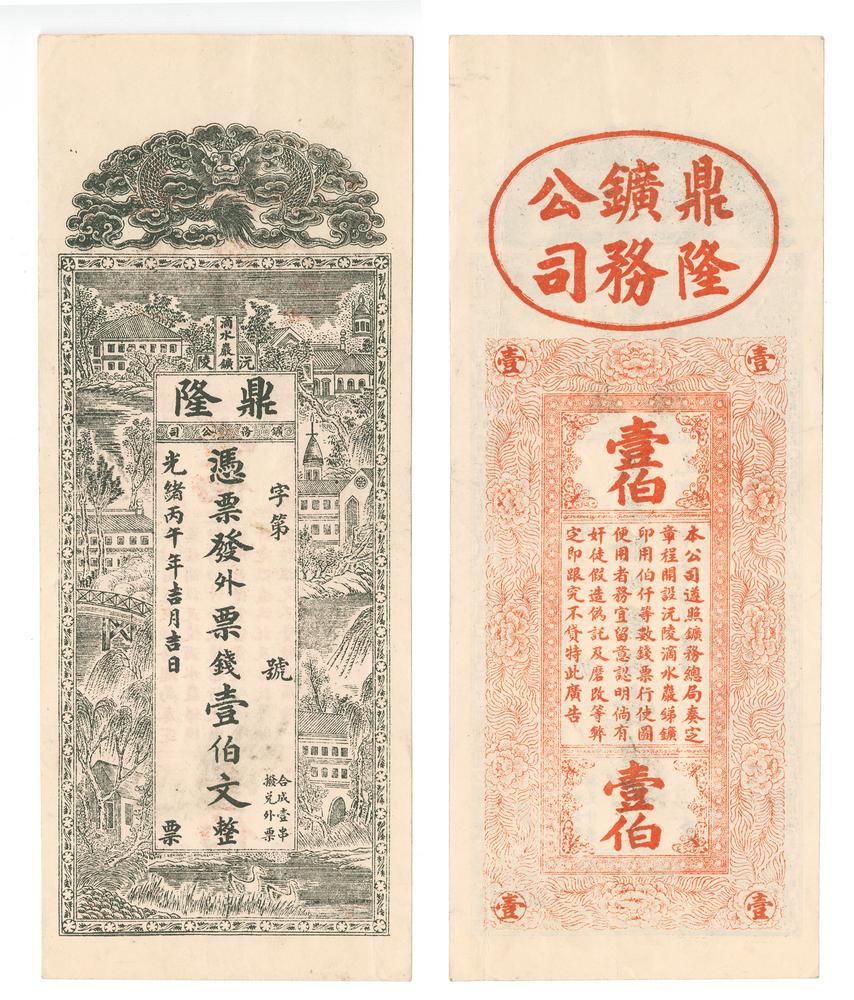 沅陵
滴水巖鑛
鼎隆
鑛務公司
字第 號
合成壹串
撥兌外票
憑票發外票錢壹伯文整
光緒丙午年吉月吉日 票
鼎隆
鑛務
公司
壹
壹
壹伯
本公司遵照鑛務總局奏定
章程開設沅陵滴水巖銻鑛
印用伯仟等數錢票行使圖
便用者務宜留意認明倘有
奸徒假造偽託及磨改等弊
定即跟究不貸特此廣告
壹伯
壹
壹